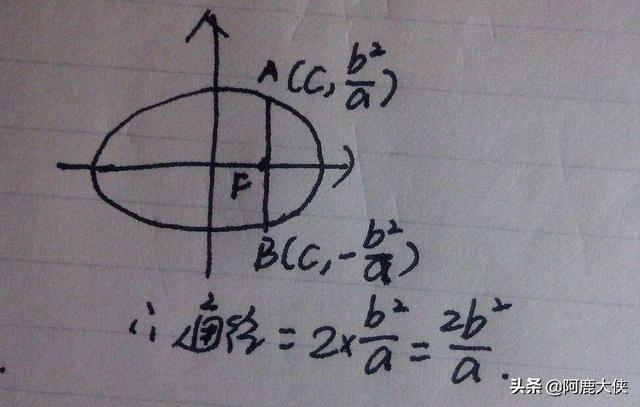 A(C, b²/a)
F
B(C, -b²/a)
∴ 通径 = 2×b²/a = 2b²/a.
头条 @阿鹿大侠